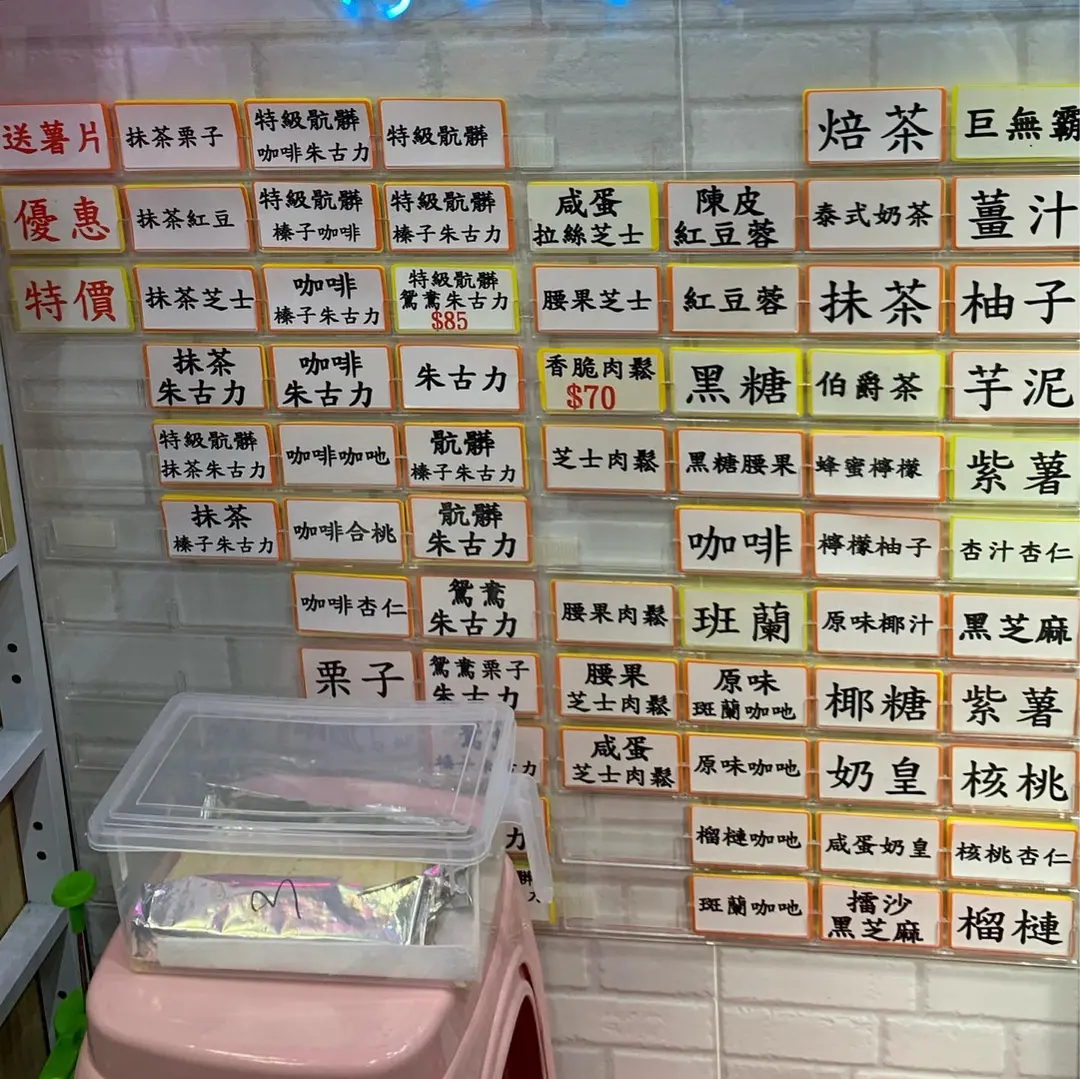 送薯片
抹茶栗子
特級骯髒
咖啡朱古力
特級骯髒
焙茶
巨無霸
優惠
抹茶紅豆
特級骯髒
榛子咖啡
特級骯髒
榛子朱古力
咸蛋
拉絲芝士
陳皮
紅豆蓉
泰式奶茶
薑汁
特價
抹茶芝士
咖啡
榛子朱古力
特級骯髒
鴛鴦朱古力
$85
腰果芝士
紅豆蓉
抹茶
柚子
抹茶
朱古力
咖啡
朱古力
朱古力
香脆肉鬆
$70
黑糖
伯爵茶
芋泥
特級骯髒
抹茶朱古力
咖啡咖吔
骯髒
榛子朱古力
芝士肉鬆
黑糖腰果
蜂蜜檸檬
紫薯
抹茶
榛子朱古力
咖啡合桃
骯髒
朱古力
咖啡
檸檬柚子
杏汁杏仁
咖啡杏仁
鴛鴦
朱古力
腰果肉鬆
班蘭
原味椰汁
黑芝麻
栗子
鴛鴦栗子
朱古力
腰果
芝士肉鬆
原味
斑蘭咖吔
椰糖
紫薯
力
咸蛋
芝士肉鬆
原味咖吔
奶皇
核桃
力
榴槤咖吔
咸蛋奶皇
核桃杏仁
斑蘭咖吔
擂沙
黑芝麻
榴槤
M